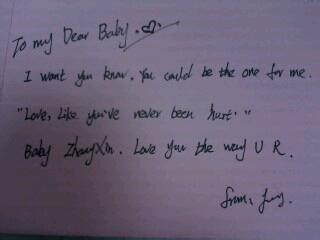 To my Dear Baby.
I want you know. You could be the one for me.
"Love, Like you've never been hurt."
Baby ZhangXin. Love you the way U R.
from,